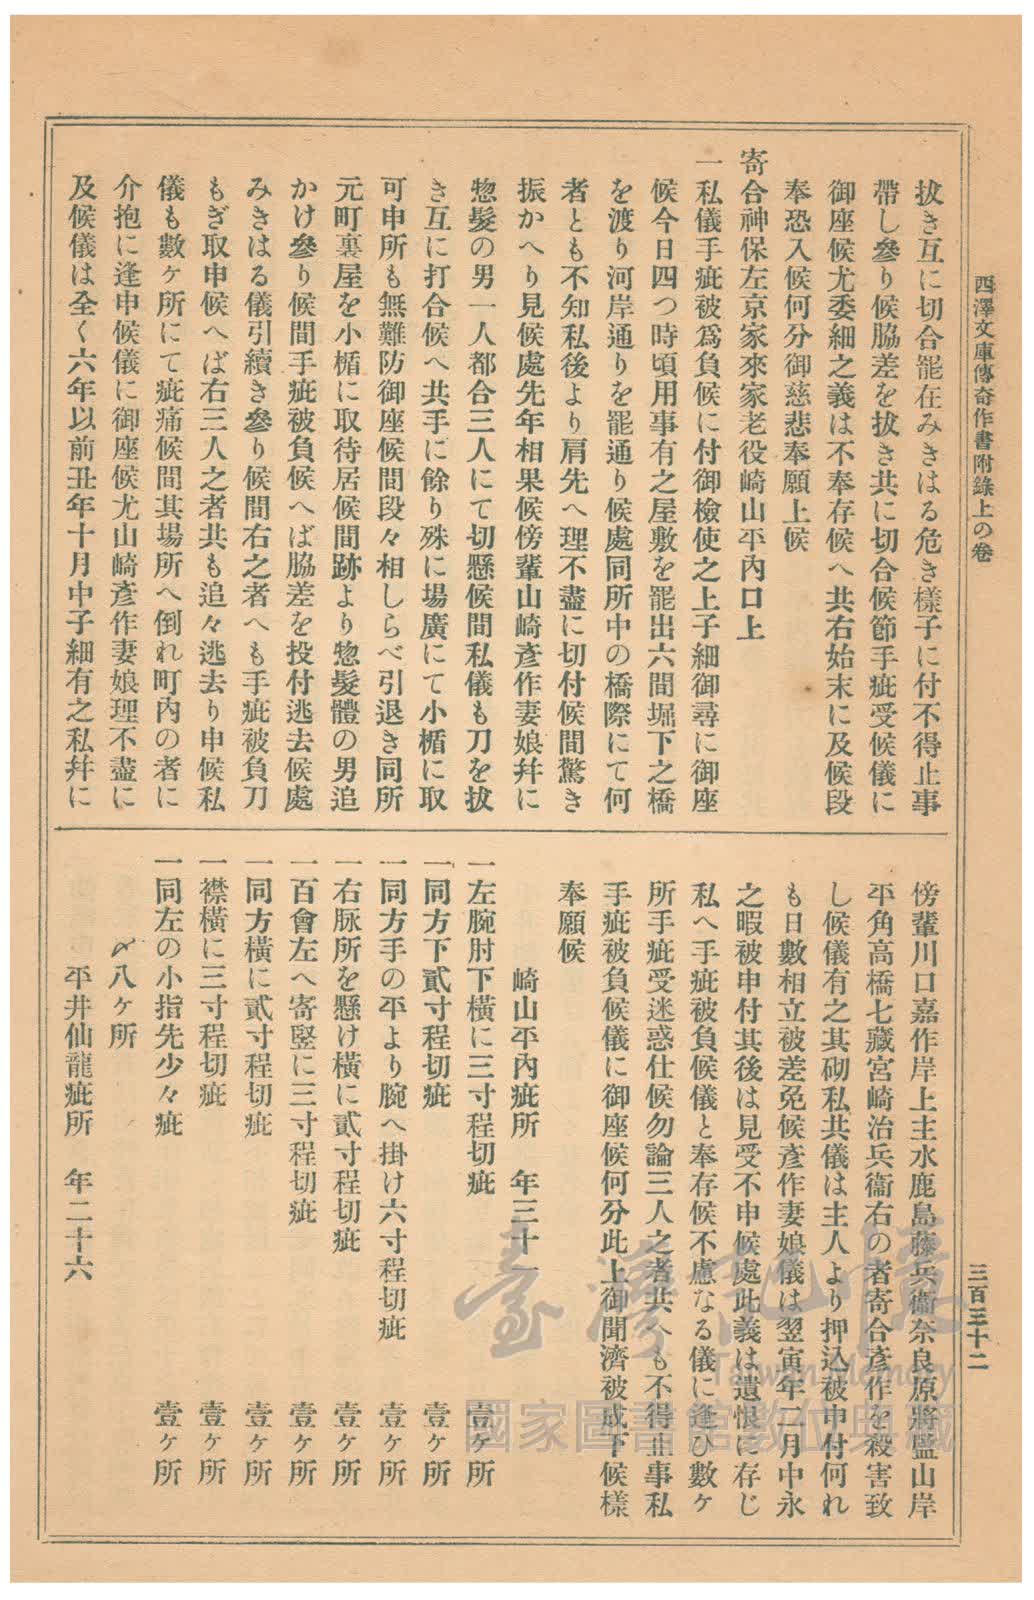 西澤文庫傳奇作書附錄上の卷
三百三十二
拔き互に切合罷在みきはる危き樣子に付不得止事
帶し參り候脇差を拔き共に切合候節手疵受候儀に
御座候尤委細之義は不奉存候へ共右始末に及候段
奉恐入候何分御慈悲奉願上候
寄合神保左京家來家老役崎山平內口上
一私儀手疵被爲負候に付御檢使之上子細御尋に御座
候今日四つ時頃用事有之屋敷を罷出六間堀下之橋
を渡り河岸通りを罷通り候處同所中の橋際にて何
者とも不知私後より肩先へ理不盡に切付候間驚き
振かへり見候處先年相果候傍輩山崎彥作妻娘幷に
惣髮の男一人都合三人にて切懸候間私儀も刀を拔
き互に打合候へ共手に餘り殊に場廣にて小楯に取
可申所も無難防御座候間段々相しらべ引退き同所
元町裏屋を小楯に取待居候間跡より惣髮體の男追
かけ參り候間手疵被負候へば脇差を投付逃去候處
みきはる儀引續き參り候間右之者へも手疵被負刀
もぎ取申候へば右三人之者共も追々逃去り申候私
儀も數ヶ所にて疵痛候間其場所へ倒れ町內の者に
介抱に逢申候儀に御座候尤山崎彥作妻娘理不盡に
及候儀は全く六年以前丑年十月中子細有之私幷に
傍輩川口嘉作岸上主水鹿島藤兵衞奈良原將監山岸
平角高橋七藏宮崎治兵衞右の者寄合彥作を殺害致
し候儀有之其砌私共儀は主人より押込被申付何れ
も日數相立被差免候彥作妻娘儀は翌寅年二月中永
之暇被申付其後は見受不申候處此義は遺恨に存じ
私へ手疵被負候儀と奉存候不慮なる儀に逢ひ數ヶ
所手疵受迷惑仕候勿論三人之者共へも不得止事私
手疵被負候儀に御座候何分此上御聞濟被成下候樣
奉願候
崎山平內疵所　年三十一
一左腕肘下橫に三寸程切疵　壹ヶ所
一同方下貳寸程切疵　壹ヶ所
一同方手の平より腕へ掛け六寸程切疵　壹ヶ所
一右脉所を懸け橫に貳寸程切疵　壹ヶ所
一百會左へ寄竪に三寸程切疵　壹ヶ所
一同方橫に貳寸程切疵　壹ヶ所
一襟橫に三寸程切疵　壹ヶ所
一同左の小指先少々疵　壹ヶ所
〆八ヶ所
平井仙龍疵所　年二十六
臺灣記憶
Taiwan Memory
國家圖書館數位典藏